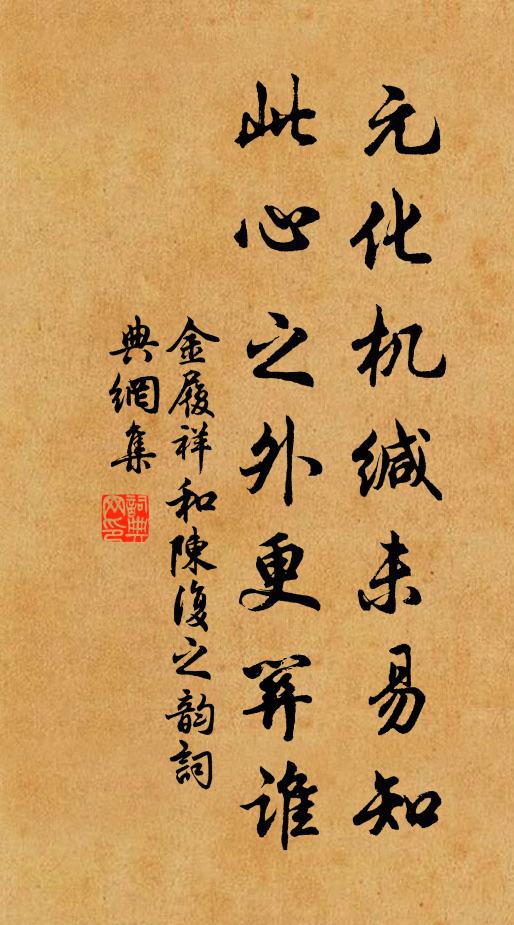 元化机缄未易知
此心之外更关谁
金履祥和陳復之韵詞
典網集
詞典
网印